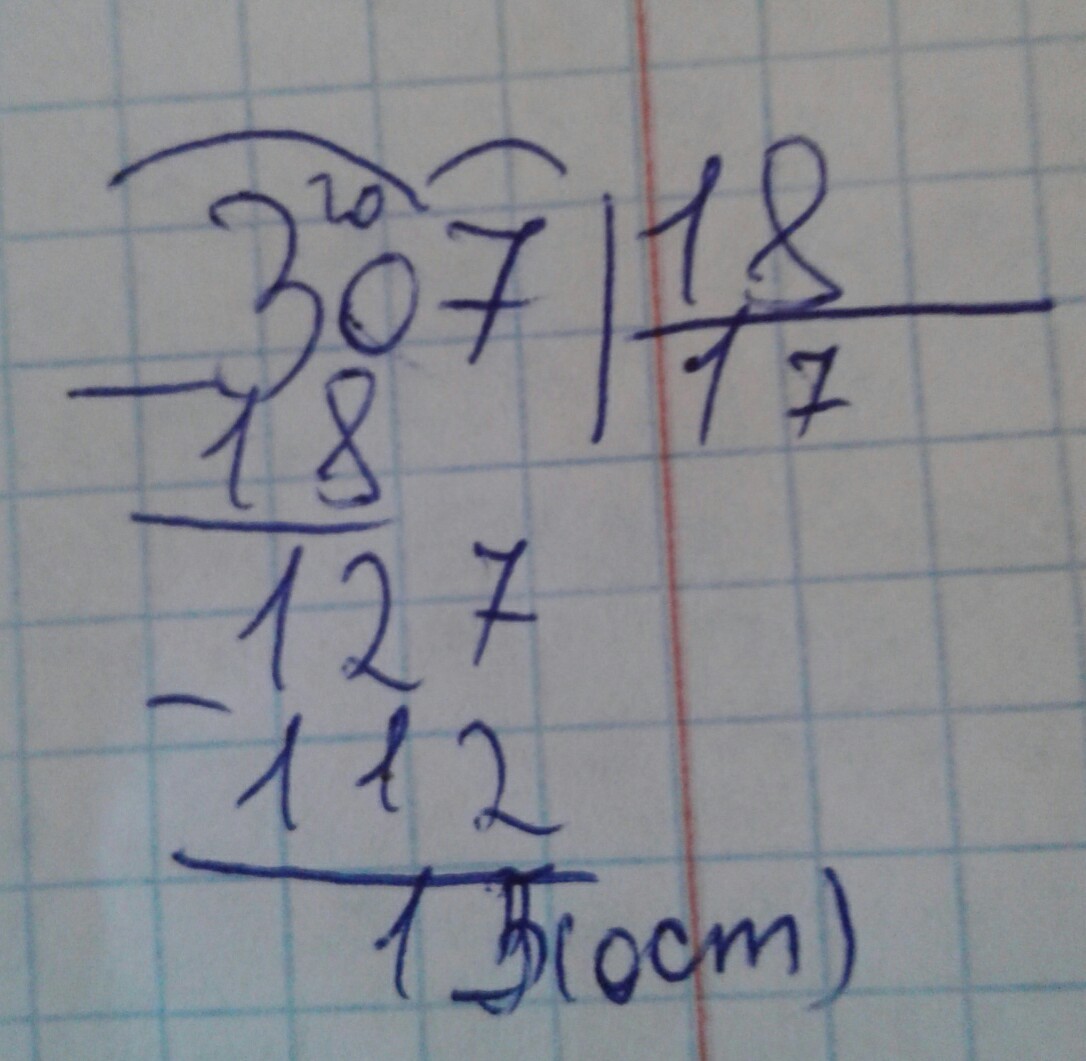 20
307 18
18 17
127
112
15 (ост)